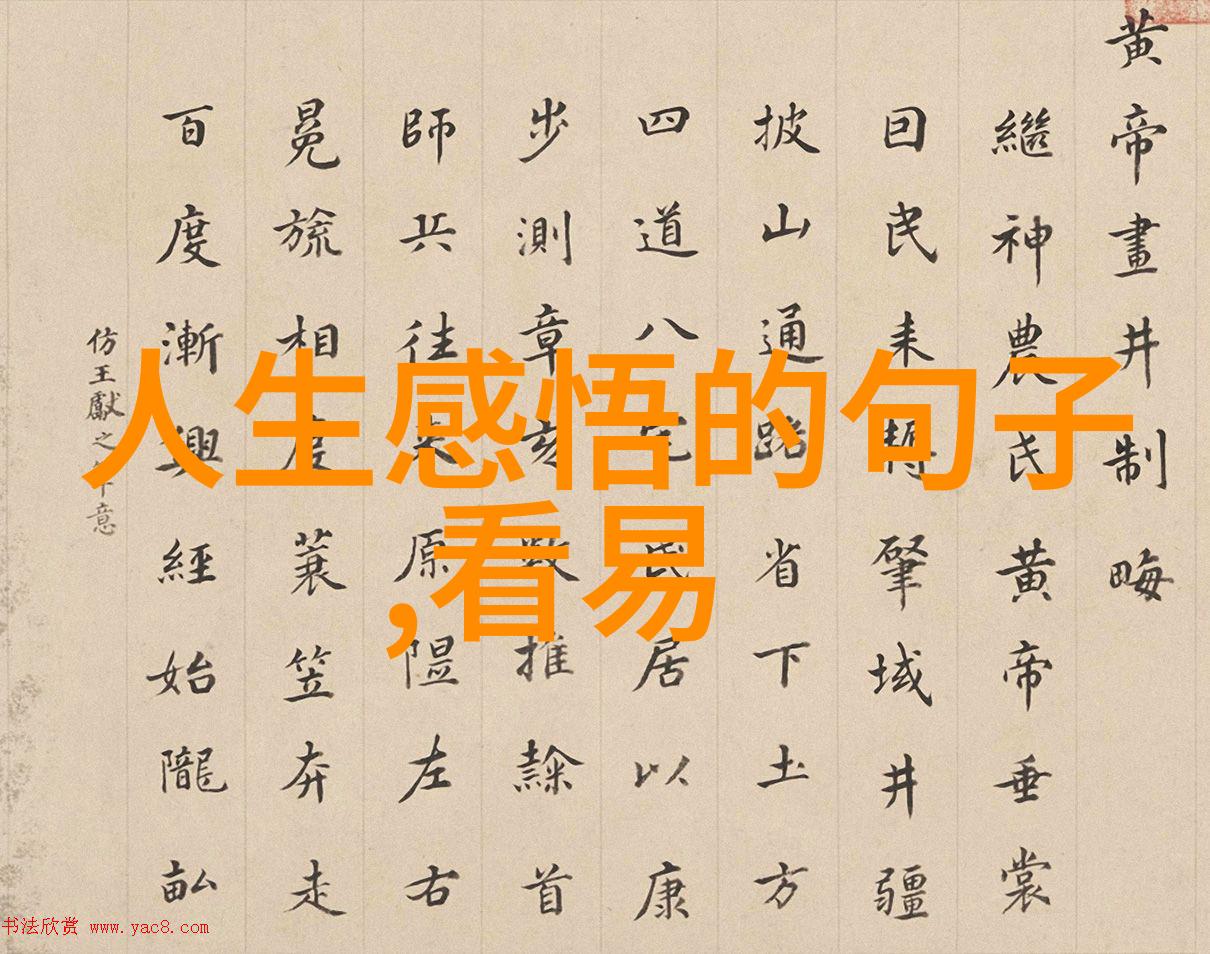 黃帝畫井制畮
繼神農氏黃帝垂裳
囙民耒肇域井疆
披山通路省下土方
四道八宅民居以康
步測章亥數推隸首
師兵往來原隰左右
冕旒相度蓑笠奔走
百度漸興經始隴畝
仿王獻之筆意
人生感悟的句子
,看易
书法欣赏 www.yac8.com